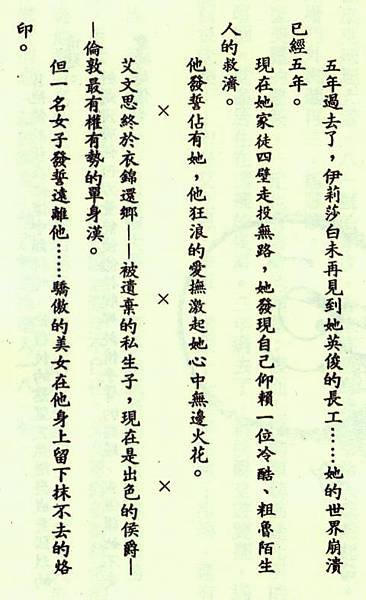 五年過去了，伊莉莎白未再見到她英俊的長工……她的世界崩潰
已經五年。
現在她家徒四壁走投無路，她發現自己仰賴一位冷酷、粗魯陌生
人的救濟。
他發誓佔有她，他狂浪的愛撫激起她心中無邊火花。
× × ×
艾文思終於衣錦還鄉——被遺棄的私生子，現在是出色的侯爵—
—倫敦最有權有勢的單身漢。
但一名女子發誓遠離他……驕傲的美女在他身上留下抹不去的烙
印。